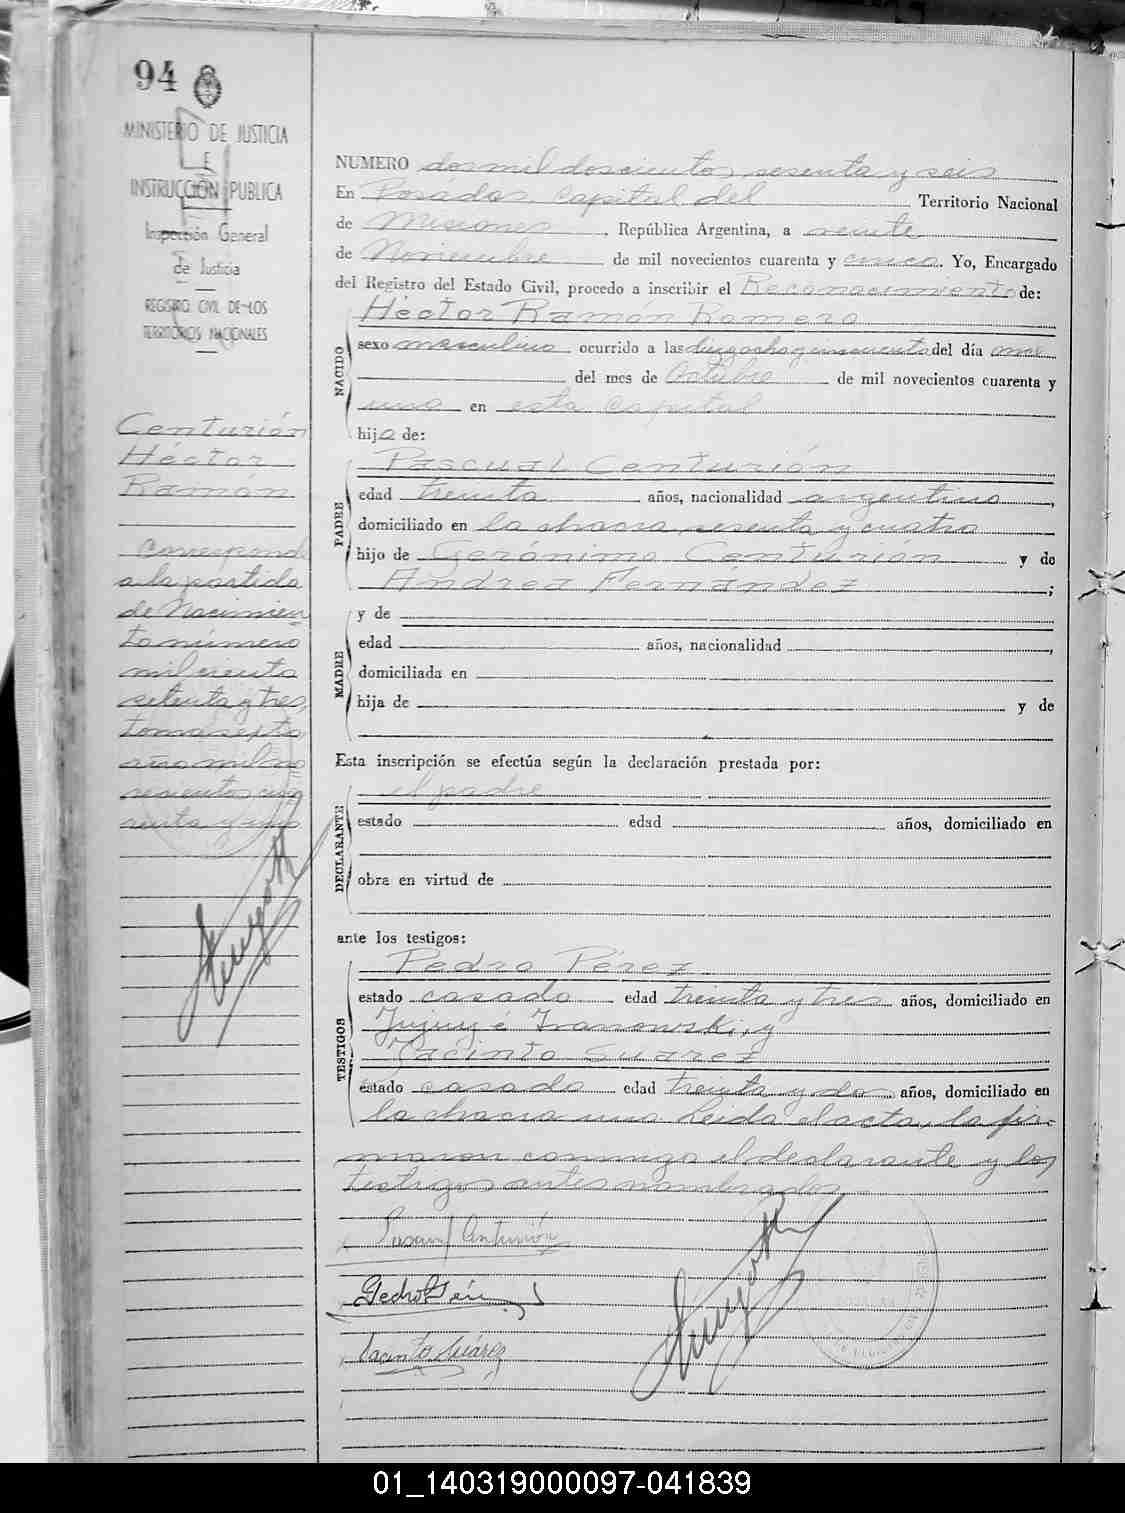 94
MINISTERIO DE JUSTICIA
E
INSTRUCCIÓN PUBLICA
Inspección General
de Justicia
REGISTRO CIVIL DE LOS
TERRITORIOS NACIONALES
Centurión
Héctor
Ramón
corresponde
a la partida
de Nacimien
to número
mil ciento
setenta y tres,
tomo sexto
año mil no
vecientos cua
renta y uno
NUMERO dos mil doscientos sesenta y seis
En Posadas Capital del Territorio Nacional
de Misiones, República Argentina, a veinte
de Noviembre de mil novecientos cuarenta y cinco. Yo, Encargado
del Registro del Estado Civil, procedo a inscribir el Reconocimiento de:
Héctor Ramón Romero
NACIDO
sexo masculino ocurrido a las diez y ocho y cincuenta del día once
del mes de Octubre de mil novecientos cuarenta y
uno en esta Capital
hijo de:
Pascual Centurión
PADRE
edad treinta años, nacionalidad argentino,
domiciliado en la chacra sesenta y cuatro
hijo de Gerónimo Centurión y de
Andrea Fernández;
y de
MADRE
edad años, nacionalidad,
domiciliada en
hija de y de
Esta inscripción se efectúa según la declaración prestada por:
el padre
DECLARANTE
estado edad años, domiciliado en
obra en virtud de
ante los testigos:
Pedro Pérez
TESTIGOS
estado casado edad treinta y tres años, domiciliado en
Jujuy é Iranowski, y
Jacinto Suarez
estado casado edad treinta y dos años, domiciliado en
la chacra uno. Leida el acta, la fir-
maron conmigo el declarante y los
testigos antes nombrados.
Pascual Centurión
Pedro Pérez
Jacinto Suárez
01_140319000097-041839